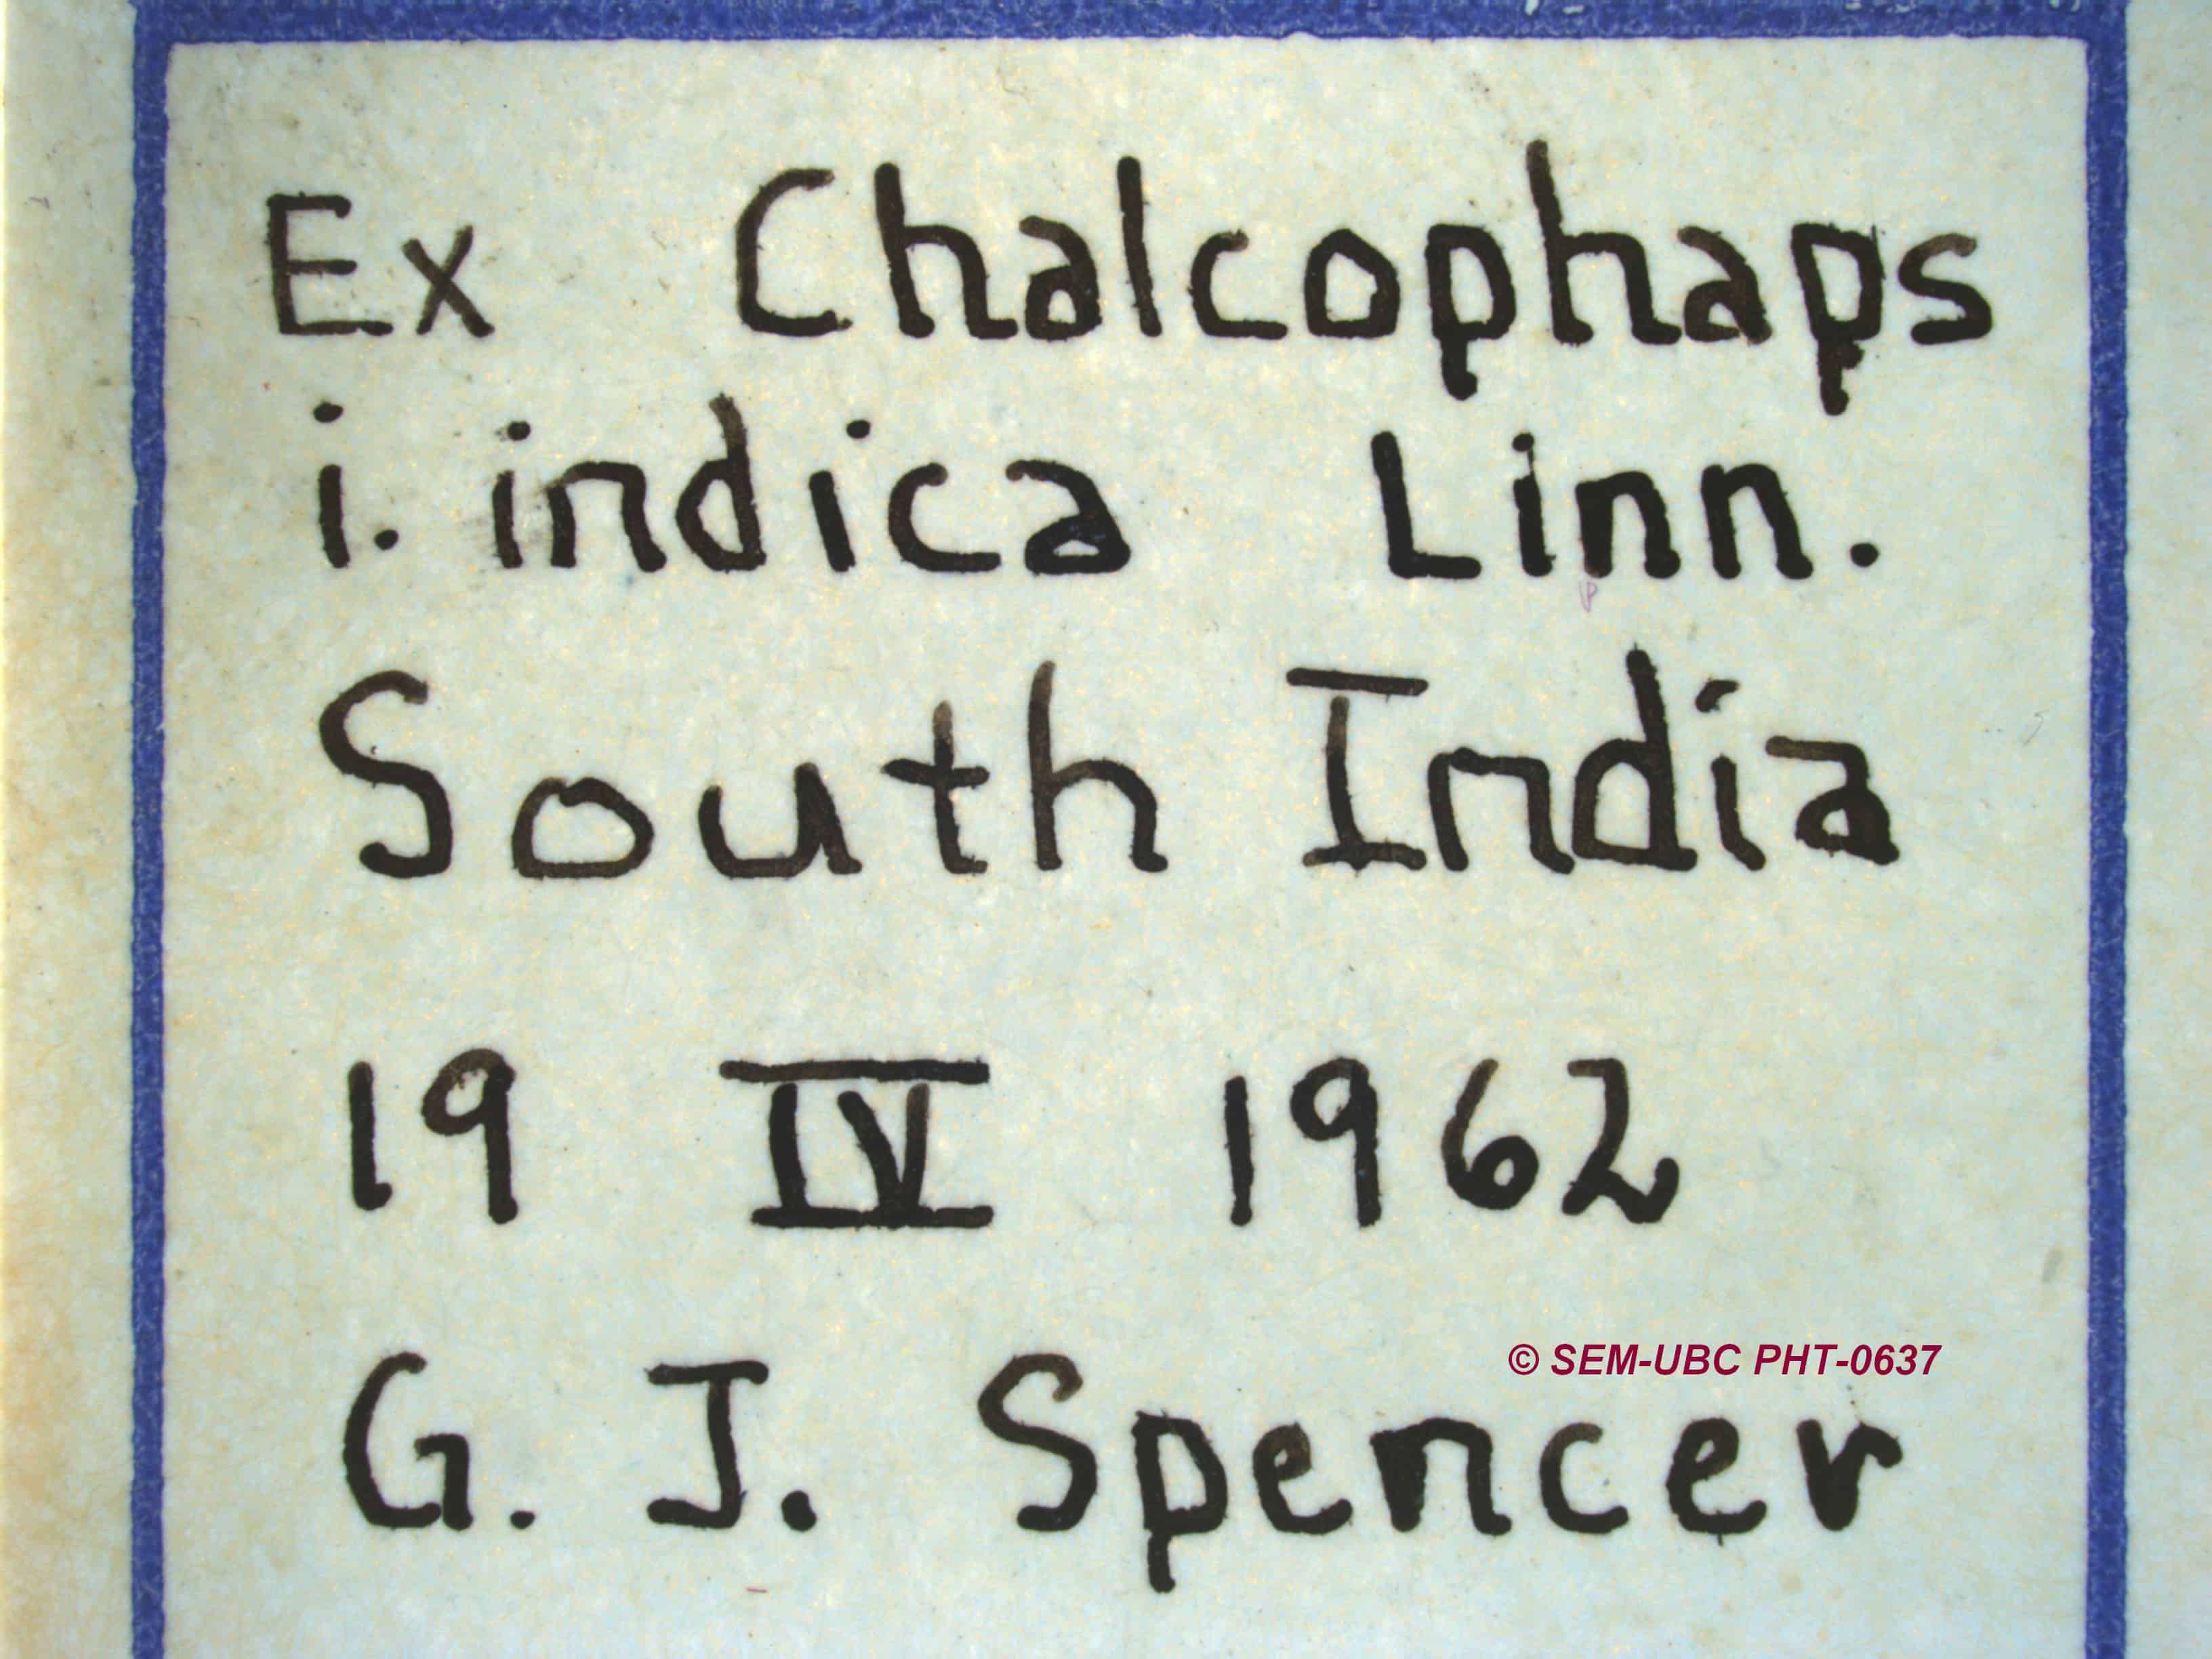 Ex Chalcophaps
i. indica Linn.
South India
19 IV 1962
© SEM-UBC PHT-0637
G. J. Spencer